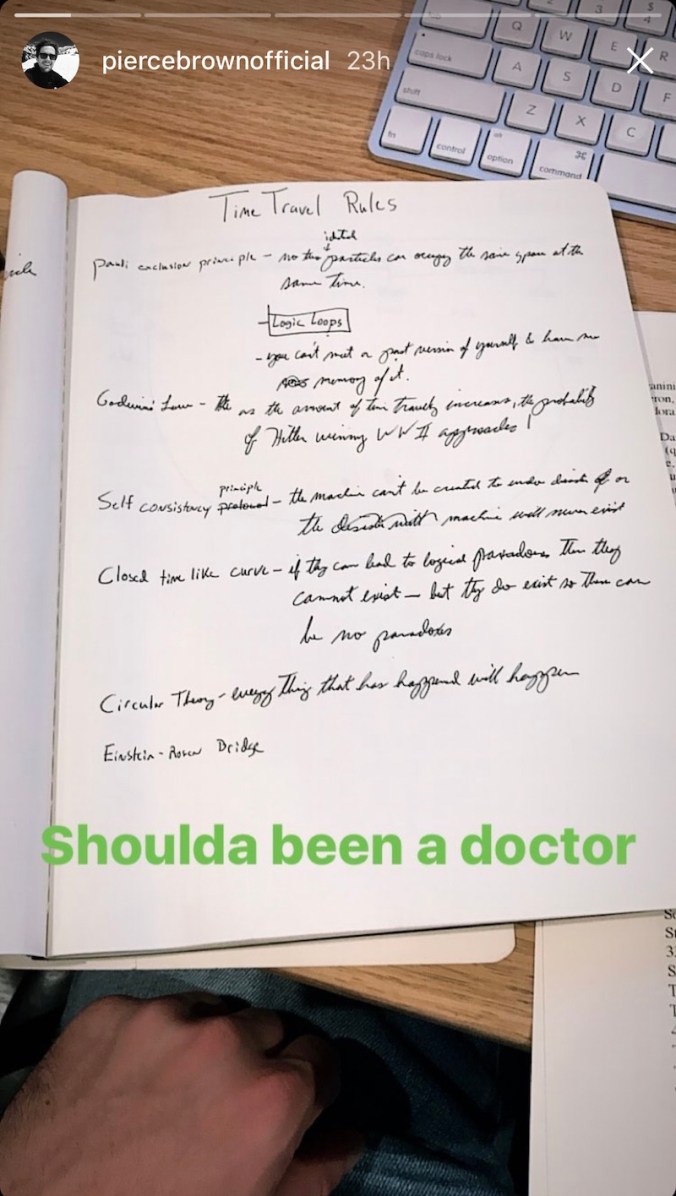 piercebrownofficial 23h
Q W E R
caps lock A S D F
shift Z X C
fn control alt option ⌘ command
Time Travel Rules
identical
Pauli exclusion principle - no two particles can occupy the same space at the
same time.
- Logic Loops
- you can't meet a past version of yourself & have no
memory of it.
Godwin's Law - as the amount of time travel increases, the probability
of Hitler winning WW II approaches 1
principle
Self consistency protocol - the machine can't be created to undo disaster or
the machine will never exist
Closed time like curve - if they can lead to logical paradoxes then they
cannot exist - but they do exist so there can
be no paradoxes
Circular Theory - everything that has happened will happen
Einstein-Rosen Bridge
Shoulda been a doctor